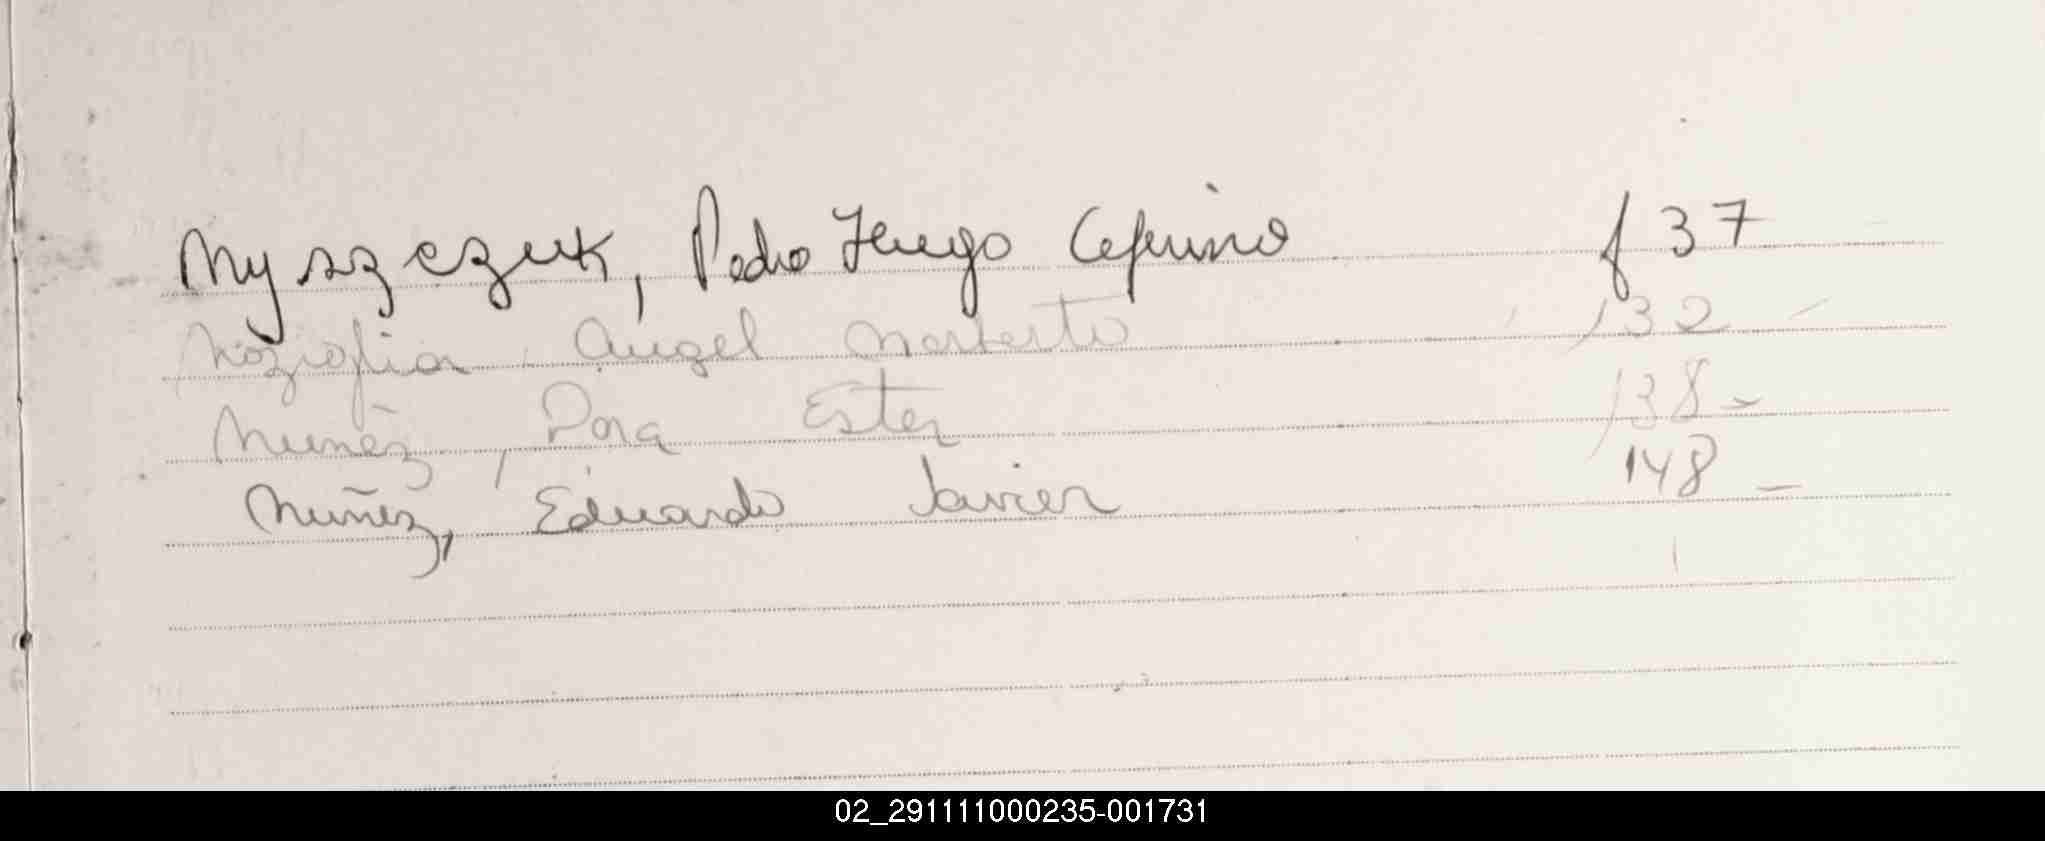 Nyszczuk, Pedro Hugo Ceferino f 37
Angel Norberto 132
Nuñez, Dora Ester 138-
Nuñez, Eduardo Javier 148 -
02_291111000235-001731